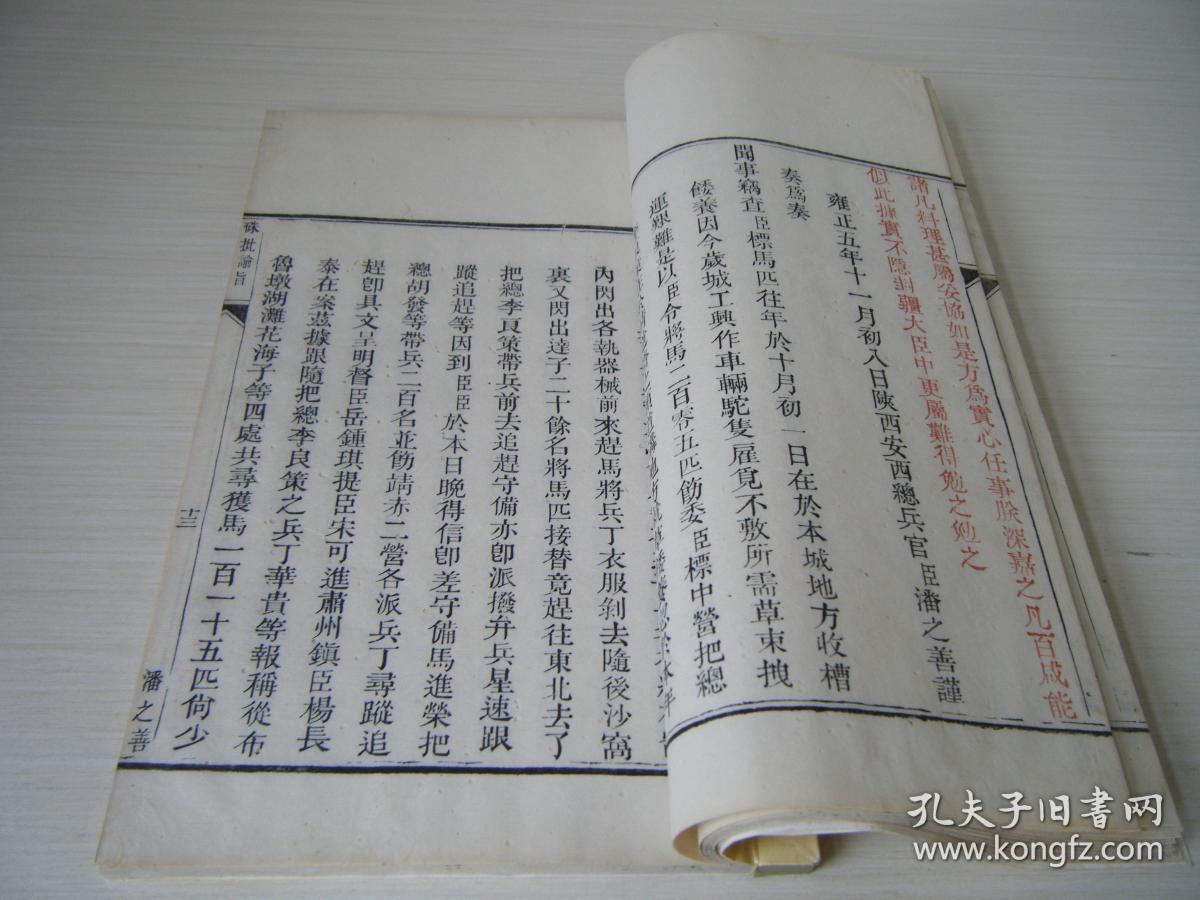 諸凡料理甚屬妥協如是方爲實心任事朕深嘉之凡百咸能
似此據實不隱封疆大臣中更屬難得勉之勉之
雍正五年十一月初八日陝西安西總兵官臣潘之善謹
奏爲奏
聞事竊查臣標馬匹往年於十月初一日在於本城地方收槽
餧養因今歲城工興作車輛駝隻雇覓不敷所需草束拽
運艱難是以臣令將馬二百零五匹飭委臣標中營把總
內閃出各執器械前來趕馬將兵丁衣服剝去隨後沙窩
裏又閃出達子二十餘名將馬匹接替竟趕往東北去了
把總李良策帶兵前去追趕守備亦卽派撥弁兵星速跟
蹤追趕等因到臣臣於本日晚得信卽差守備馬進榮把
總胡發等帶兵二百名並飭靖赤二營各派兵丁尋蹤追
趕卽具文呈明督臣岳鍾琪提臣宋可進肅州鎮臣楊長
泰在案茲據跟隨把總李良策之兵丁華貴等報稱從布
魯墩湖灘花海子等四處共尋獲馬一百一十五匹尙少
硃批諭旨
十三
潘之善
孔夫子旧书网
www.kongfz.com